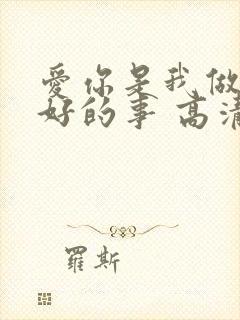 愛你是我做
好的事 高清
羅斯